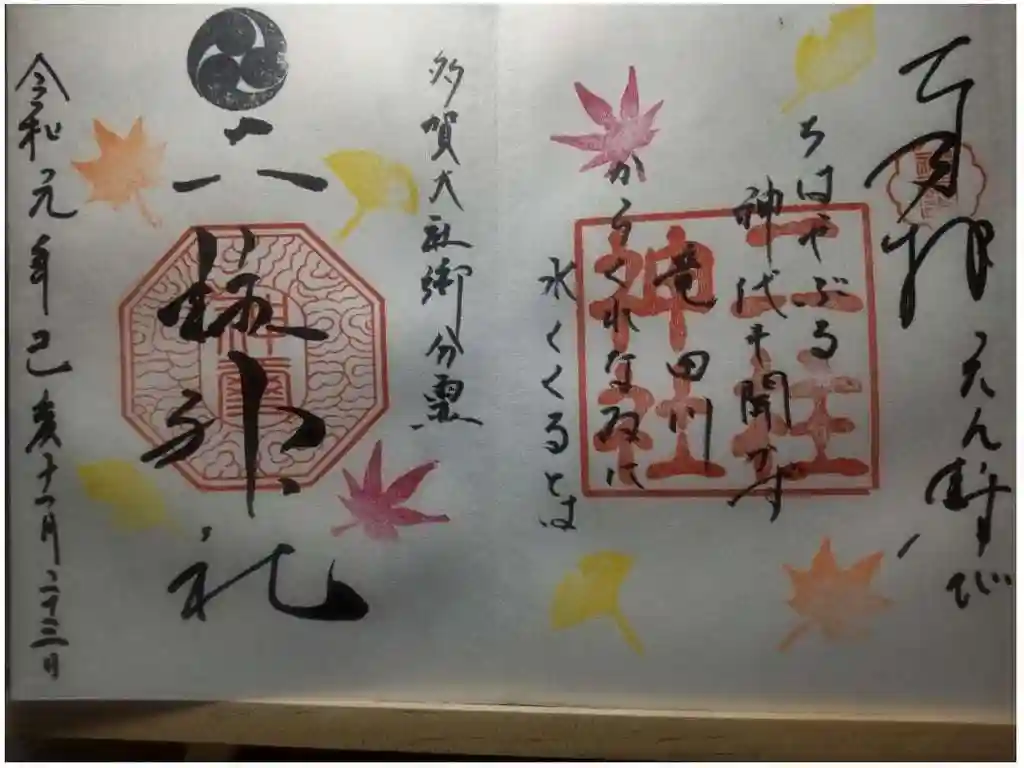 奉拝 えん結び
ちはやぶる
神代も聞かず
竜田川
からくれなゐに
水くくるとは
神社
多賀大社御分霊
神社
令和元年己亥十一月二十三日